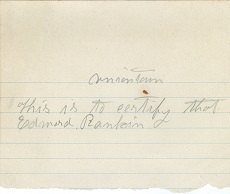 uniontown
This is to certify that
Edmond Rankin